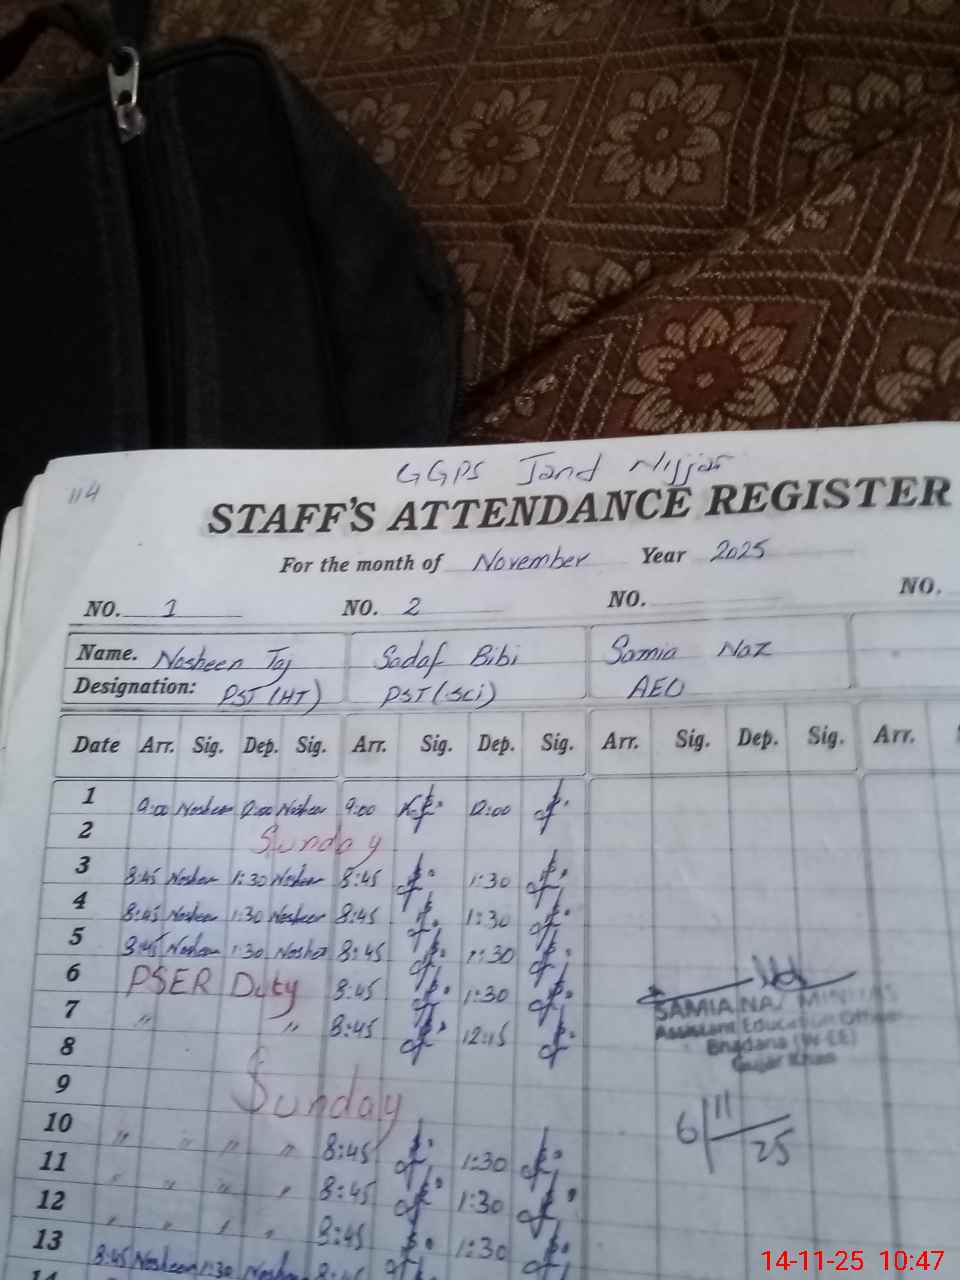 114
GGPS Jand Nijjar
STAFF'S ATTENDANCE REGISTER
For the month of November Year 2025
NO. 1 NO. 2 NO. NO.
Name. Nosheen Taj Sadaf Bibi Samia Naz
Designation: PST (HT) PST (Sci) AEO
Date Arr. Sig. Dep. Sig. Arr. Sig. Dep. Sig. Arr. Sig. Dep. Sig. Arr.
1 9:00 Nosheen 12:00 Nosheen 9:00 12:00
2 Sunday
3 8:45 Nosheen 1:30 Nosheen 8:45 1:30
4 8:45 Nosheen 1:30 Nosheen 8:45 1:30
5 8:45 Nosheen 1:30 Nosheen 8:45 1:30
6 PSER Duty 8:45 1:30
7 " " 8:45 12:15
8
9 Sunday
10 " " " " 8:45 1:30
11 " " " " 8:45 1:30
12 " " " " 8:45 1:30
13 8:45 Nosheen 1:30 Nosheen 8:45
14
SAMIA NAZ MINHAS
Assistant Education Officer
Bhadana (W-EE)
Gujar Khan
6/11/25
14-11-25 10:47